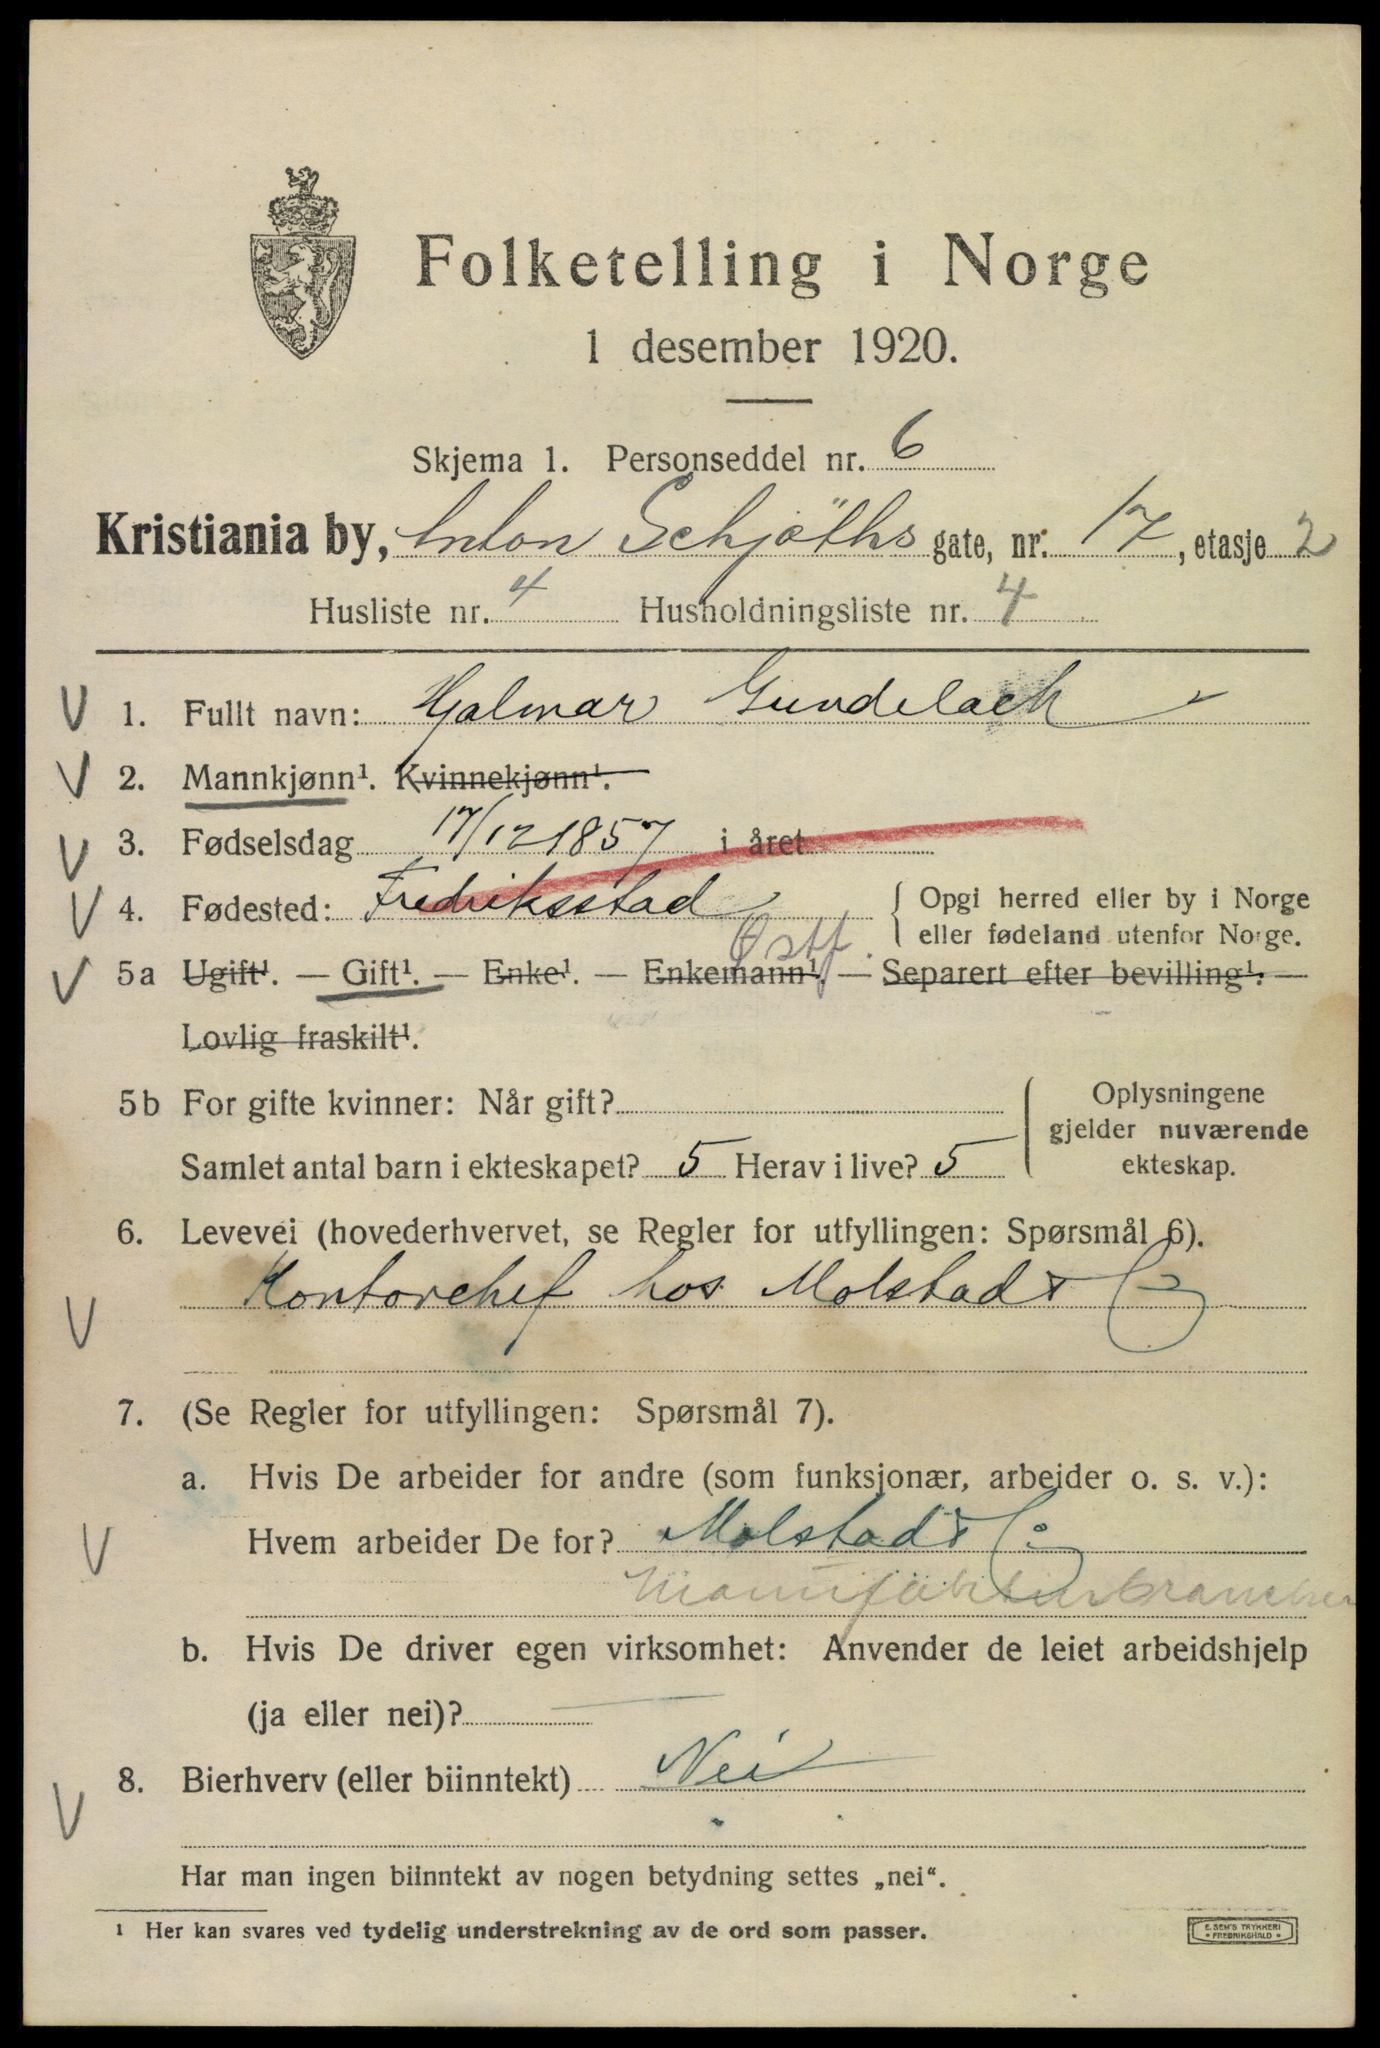 Folketelling i Norge
1 desember 1920.
Skjema 1. Personseddel nr. 6
Kristiania by, Anton Schjöths gate, nr. 17, etasje 2
Husliste nr. 4 Husholdningsliste nr. 4
V 1. Fullt navn: Hjalmar Gundelach
V 2. Mannkjønn¹. Kvinnekjønn¹.
V 3. Fødselsdag 17/12 1857 i året
V 4. Fødested: Fredriksstad { Opgi herred eller by i Norge
eller fødeland utenfor Norge.
Østf.
V 5a Ugift¹. — Gift¹. — Enke¹. — Enkemann¹. — Separert efter bevilling¹. —
Lovlig fraskilt¹.
5b For gifte kvinner: Når gift?
Samlet antal barn i ekteskapet? 5 Herav i live? 5
Oplysningene
gjelder nuværende
ekteskap.
6. Levevei (hovederhvervet, se Regler for utfyllingen: Spørsmål 6).
V Kontorchef hos Molstad & Co
7. (Se Regler for utfyllingen: Spørsmål 7).
a. Hvis De arbeider for andre (som funksjonær, arbeider o. s. v.):
V Hvem arbeider De for? Molstad & Co
Manufakturbranchen
b. Hvis De driver egen virksomhet: Anvender de leiet arbeidshjelp
(ja eller nei)? —
V 8. Bierhverv (eller biinntekt) Nei
Har man ingen biinntekt av nogen betydning settes „nei“.
¹ Her kan svares ved tydelig understrekning av de ord som passer.
E. SEM'S TRYKKERI
• FREDRIKSHALD •